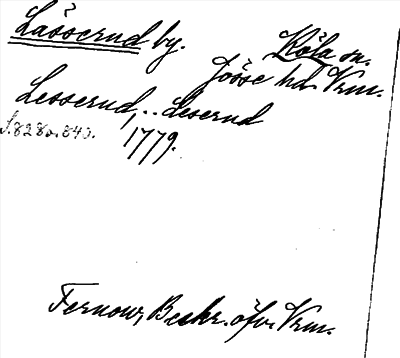 Lässerud by.
Köla sn.
Jösse hd Vrm.
Lesserud, .. Leserud
S. 828 o. 840.
1779.
Fernow, Beskr. öfv. Vrm.